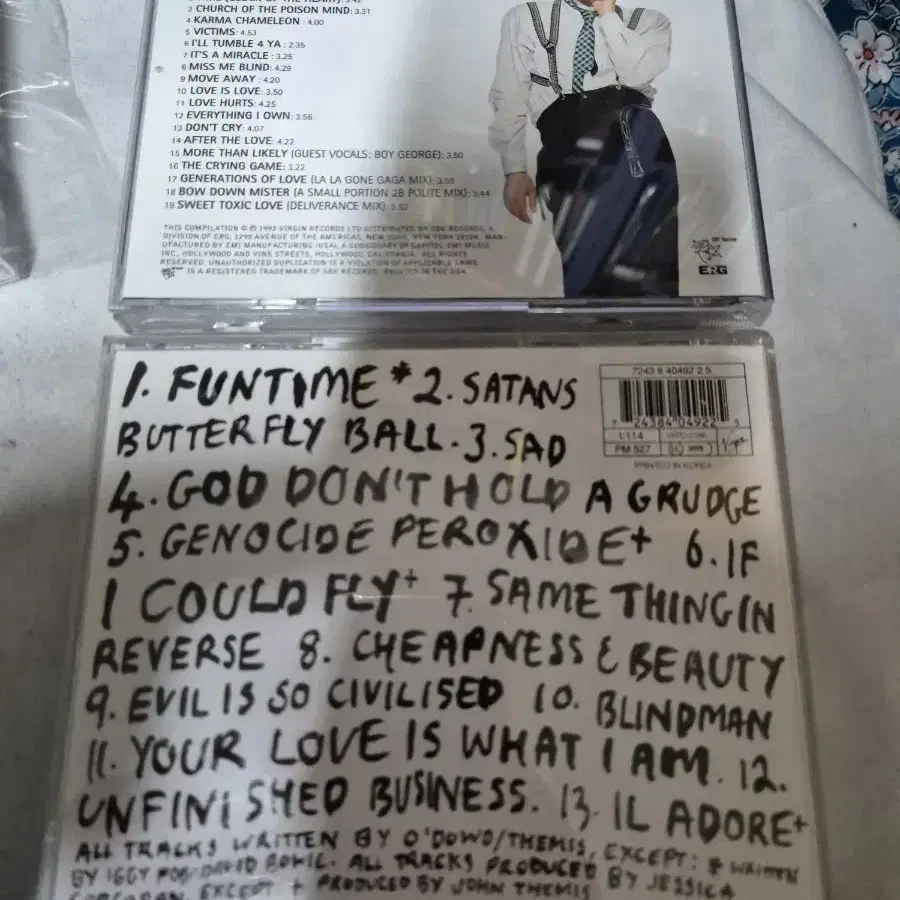 3 CHURCH OF THE POISON MIND: 3.31
4 KARMA CHAMELEON : 4.00
5 VICTIMS: 4.53
6 I'LL TUMBLE 4 YA : 2.35
7 IT'S A MIRACLE : 3.25
8 MISS ME BLIND: 4.29
9 MOVE AWAY : 4.20
10 LOVE IS LOVE: 3.50
11 LOVE HURTS: 4.25
12 EVERYTHING I OWN: 3.56
13 DON'T CRY: 4.07
14 AFTER THE LOVE: 4.22
15 MORE THAN LIKELY (GUEST VOCALS: BOY GEORGE): 3.50
16 THE CRYING GAME: 3.22
17 GENERATIONS OF LOVE (LA LA GONE GAGA MIX): 3.58
18 BOW DOWN MISTER (A SMALL PORTION 2B POLITE MIX): 3.44
19 SWEET TOXIC LOVE (DELIVERANCE MIX): 3.52
THIS COMPILATION ℗ © 1993 VIRGIN RECORDS LTD DISTRIBUTED BY SBK RECORDS, A
DIVISION OF ERG, 1290 AVENUE OF THE AMERICAS, NEW YORK, NEW YORK 10104. MAN-
UFACTURED BY EMI MANUFACTURING (USA), A SUBSIDIARY OF CAPITOL-EMI MUSIC
INC., HOLLYWOOD AND VINE STREETS, HOLLYWOOD, CALIFORNIA. ALL RIGHTS
RESERVED. UNAUTHORIZED DUPLICATION IS A VIOLATION OF APPLICABLE LAWS.
IS A REGISTERED TRADEMARK OF SBK RECORDS. PRINTED IN THE USA
ERG
1. FUNTIME * 2. SATANS
BUTTERFLY BALL. 3. SAD
4. GOD DON'T HOLD A GRUDGE
5. GENOCIDE PEROXIDE+ 6. IF
I COULD FLY+ 7. SAME THING IN
REVERSE 8. CHEAPNESS & BEAUTY
9. EVIL IS SO CIVILISED 10. BLINDMAN
11. YOUR LOVE IS WHAT I AM. 12.
UNFINISHED BUSINESS. 13. IL ADORE+
ALL TRACKS WRITTEN BY O'DOWD/THEMIS, EXCEPT: * WRITTEN
BY IGGY POP/DAVID BOWIE. ALL TRACKS PRODUCED BY JESSICA
CORCORAN, EXCEPT + PRODUCED BY JOHN THEMIS
7243 8 40492 2 5
7 24384 04922 5
1:114
PM 527
Virgin
PRINTED IN KOREA